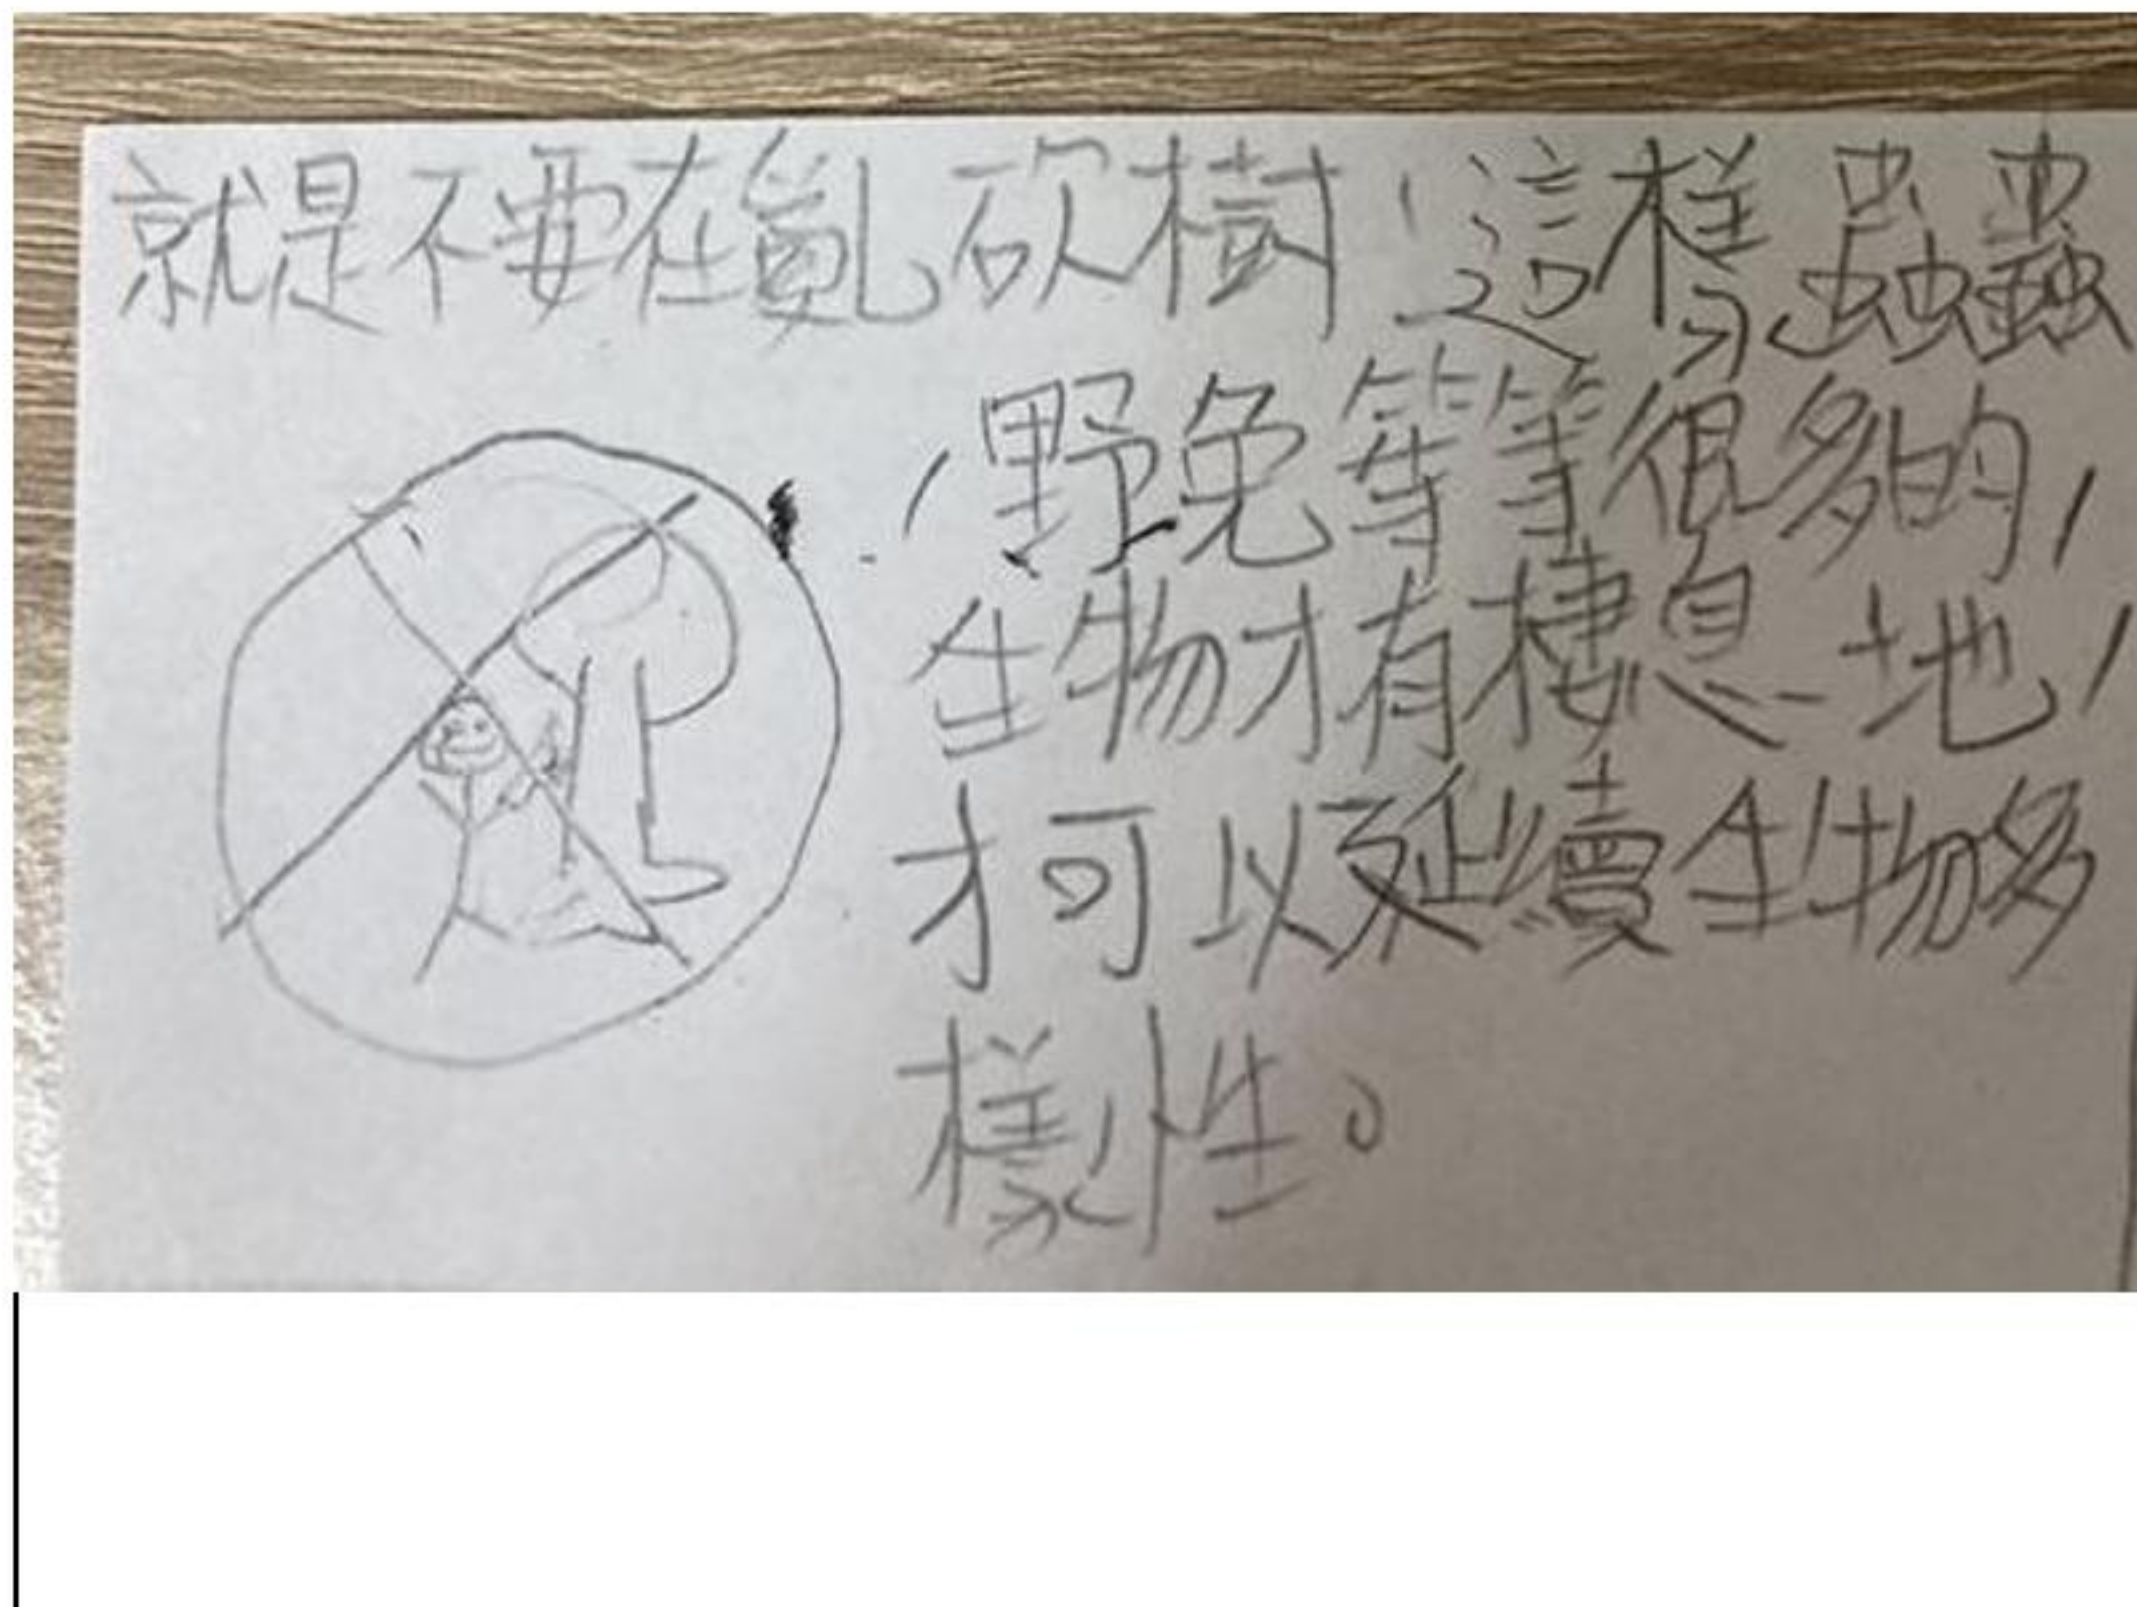 就是不要在亂砍樹，這樣蟲蟲
，野兔等等很多的，
生物才有棲息地，
才可以延續生物多
樣性。